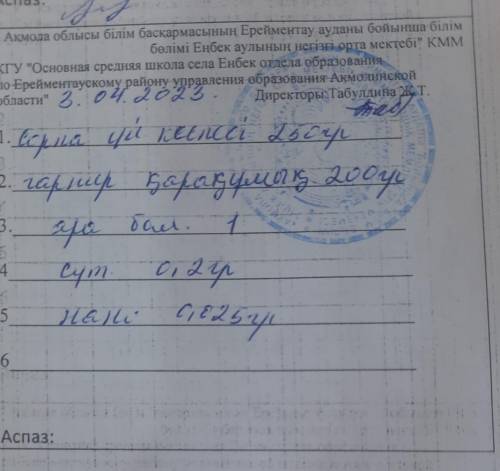 Аспаз:
Ақмола облысы білім басқармасының Ерейментау ауданы бойынша білім
бөлімі Еңбек аулының негізгі орта мектебі" КММ
КГУ "Основная средняя школа села Енбек отдела образования
по Ерейментаускому району управления образования Акмолинской
области" 3.04.2023. Директоры: Табулдина Ж.Т.
1. Сорпа үй кеспесі 250гр
2. гарнир қарақұмық 200гр
3. ара бал. 1
4 сүт 0,2гр
5 нан: 0,025гр
6
Аспаз: